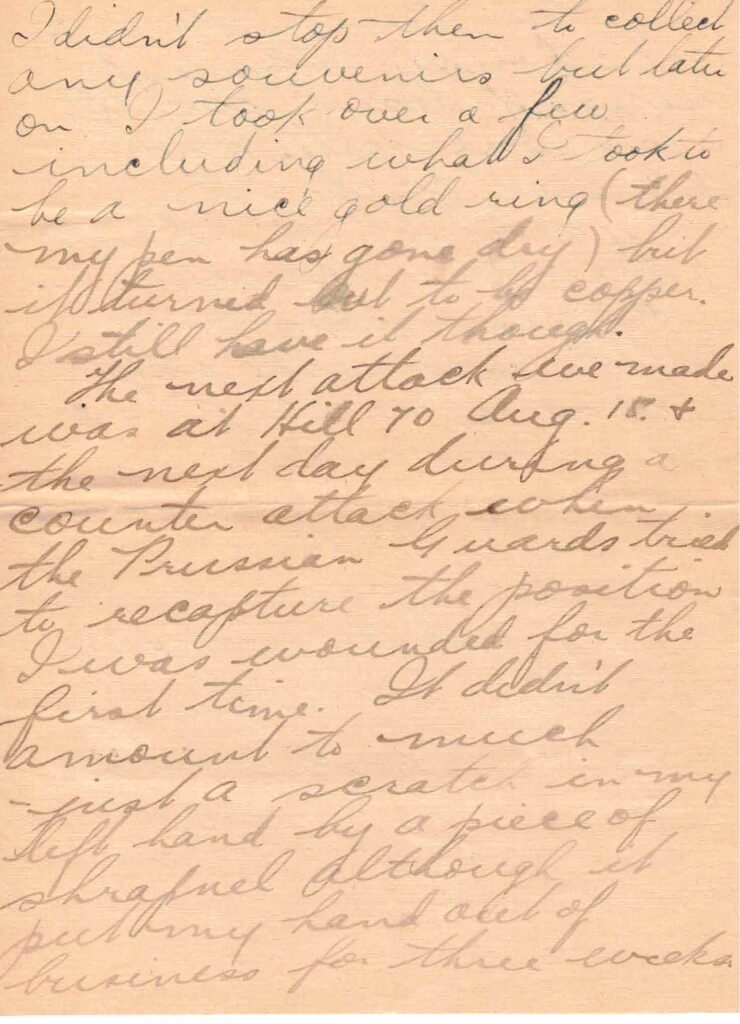 I didn't stop then to collect
any souvenirs but later
on I took over a few
including what I took to
be a nice gold ring (there
my pen has gone dry) but
it turned out to be copper.
I still have it though.
The next attack we made
was at Hill 70 Aug. 15. &
the next day during a
counter attack when
the Prussian Guards tried
to recapture the position
I was wounded for the
first time. It didn't
amount to much
- just a scratch in my
left hand by a piece of
shrapnel although it
put my hand out of
business for three weeks